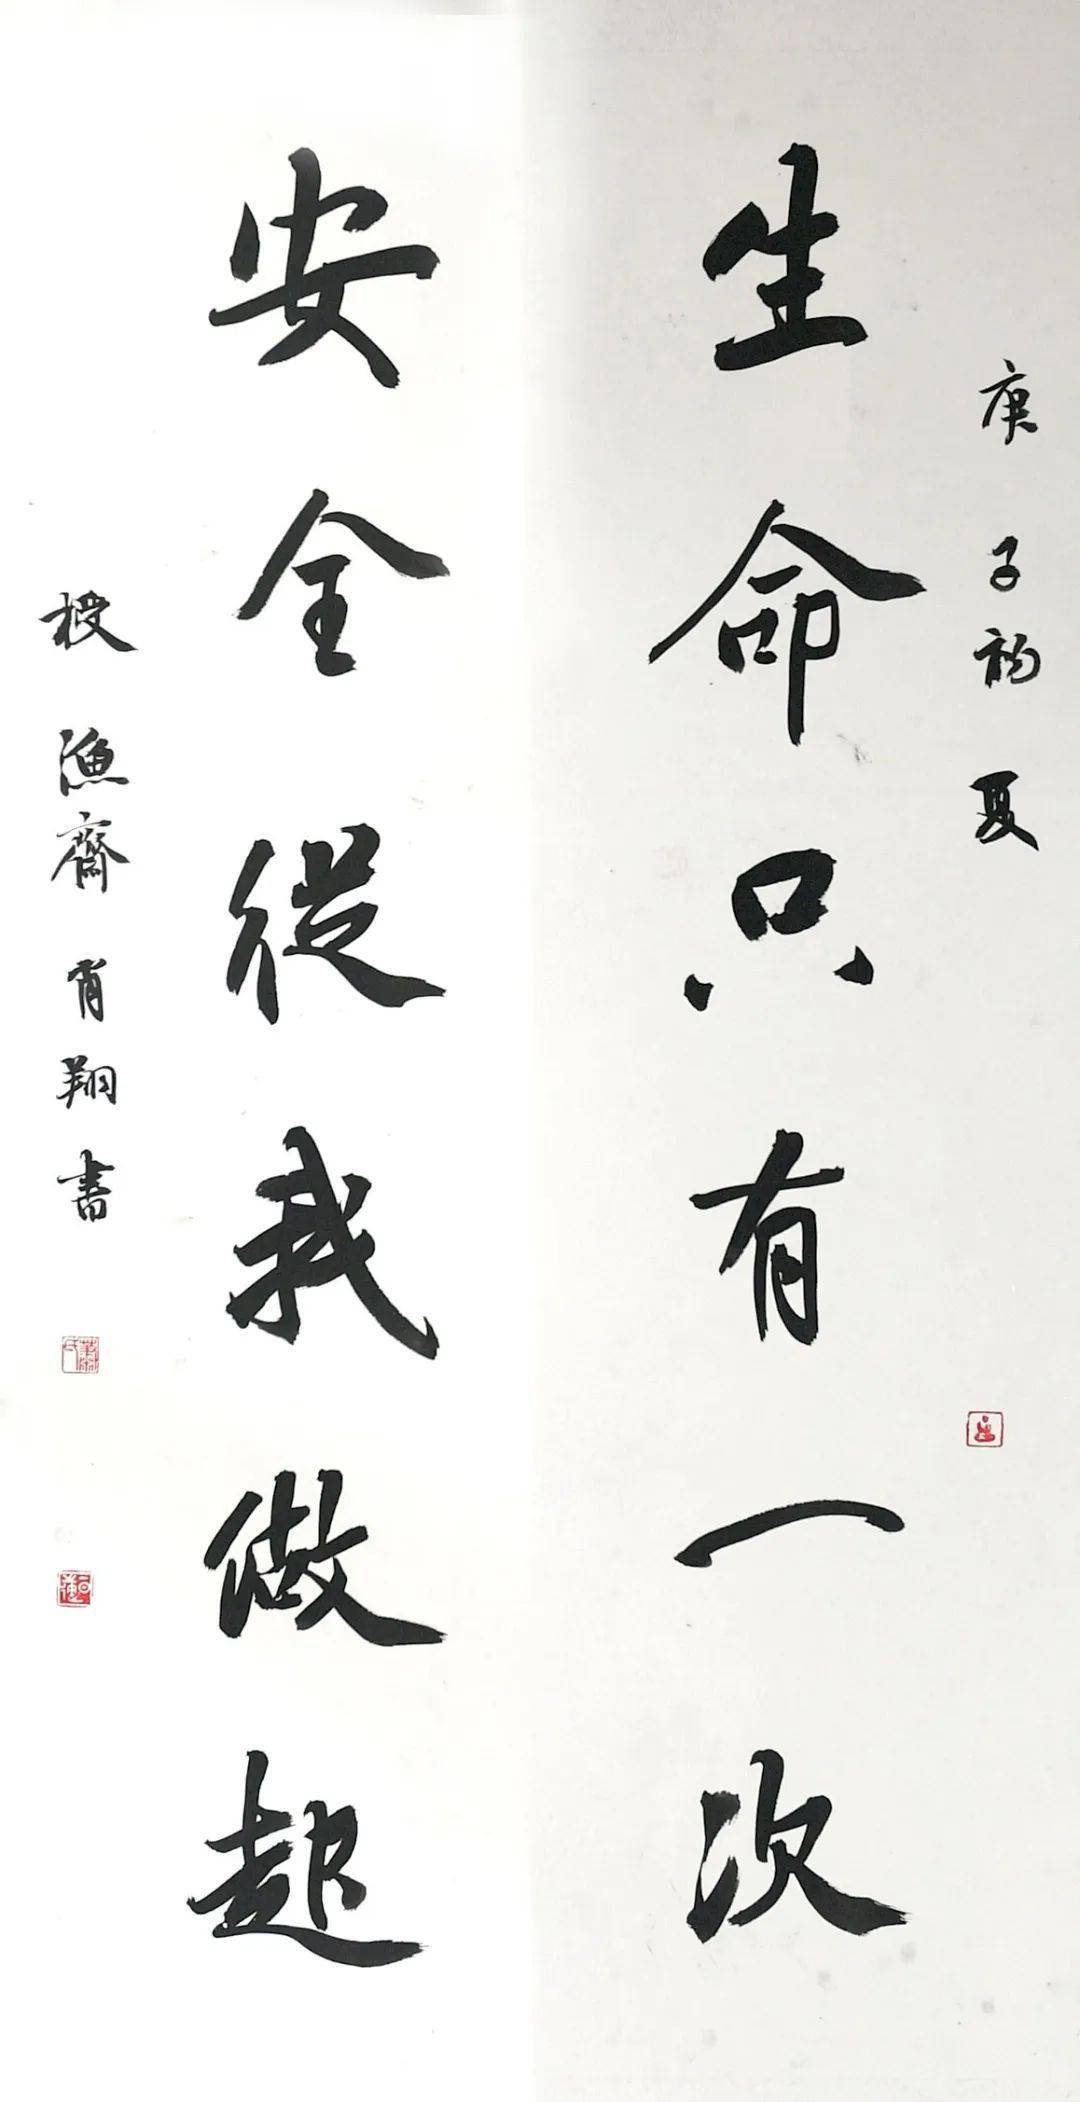 庚子初夏
生命只有一次
安全從我做起
漁齋肖翔書